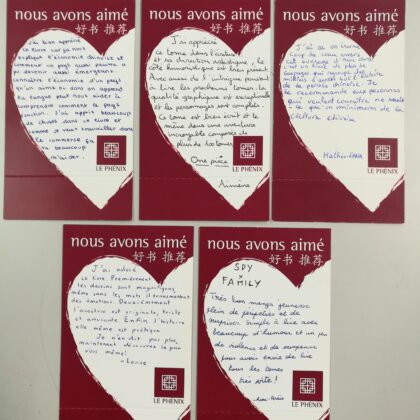 nous avons aimé
好书 推荐
J'ai bien apprécié
ce livre car ça nous
expliqué l'économie chinoise et
comment ce pays auparavant a
pu devenir aussi émergeant
connaître l'économie d'un pays
qu'on aime ou dont on apprend
la langue peut nous aider à
comprendre comment le pays
J'ai appris beaucoup
de choses dans ce livre et
comme je veux travailler dans
le commerce ça
va beaucoup
m'aider.
LE PHÉNIX
nous avons aimé
好书 推荐
J'ai apprécié
ce tome dans l'écriture
et sa direction artistique, le
côté humoristique est bien présent.
Avec aussi de l'intrigue poussant
de lire les prochains tomes. La
qualité graphique est exceptionnelle
et les personnages sont complets.
Ce tome est bien écrit et te
mène dans une aventure
incroyable composée de
plus de 100 tomes.
One piece
LE PHÉNIX
nous avons aimé
好书 推荐
J'ai eu un énorme
coup de cœur envers
cet ouvrage
de la pensée chinoise. Je
le recommande aux personnes
qui veulent connaître ne serait
ce que un minimum de la
culture chinoise
LE PHÉNIX
nous avons aimé
好书 推荐
J'ai adoré
ce livre. Premièrement
les dessins sont magnifiques,
même sans les mots ils transmettent
des émotions. Deuxièmement
l'histoire est originale, triste
et amusante. Enfin, l'histoire
elle même est poétique.
Je n'en dit pas plus,
maintenant découvrez le par
vous même!
- Louise
LE PHÉNIX
nous avons aimé
好书 推荐
SPY
x
FAMILY
Très bon manga jeunesse
plein de péripéties et de
surprises. Simple à lire avec
beaucoup d'humour et un peu
de violence et de suspense
pour avoir envie de lire
tous les tomes
très vite!
LE PHÉNIX